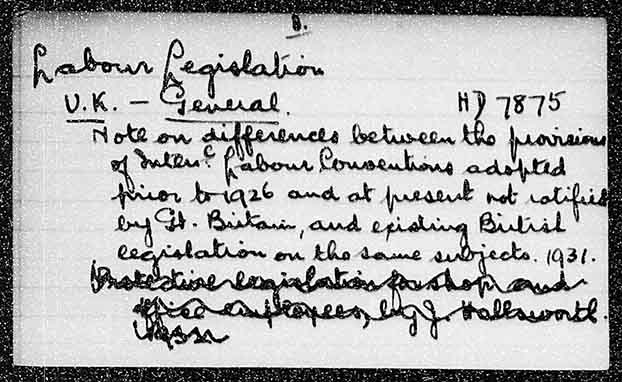 8.
Labour Legislation
U.K. – General. HD 7875
Note on differences between the provisions
of Intern.c Labour Conventions adopted
prior to 1926 and at present not ratified
by Gt. Britain, and existing British
legislation on the same subjects. 1931.
Protective legislation for shop and
office employees, by J. Hallsworth.